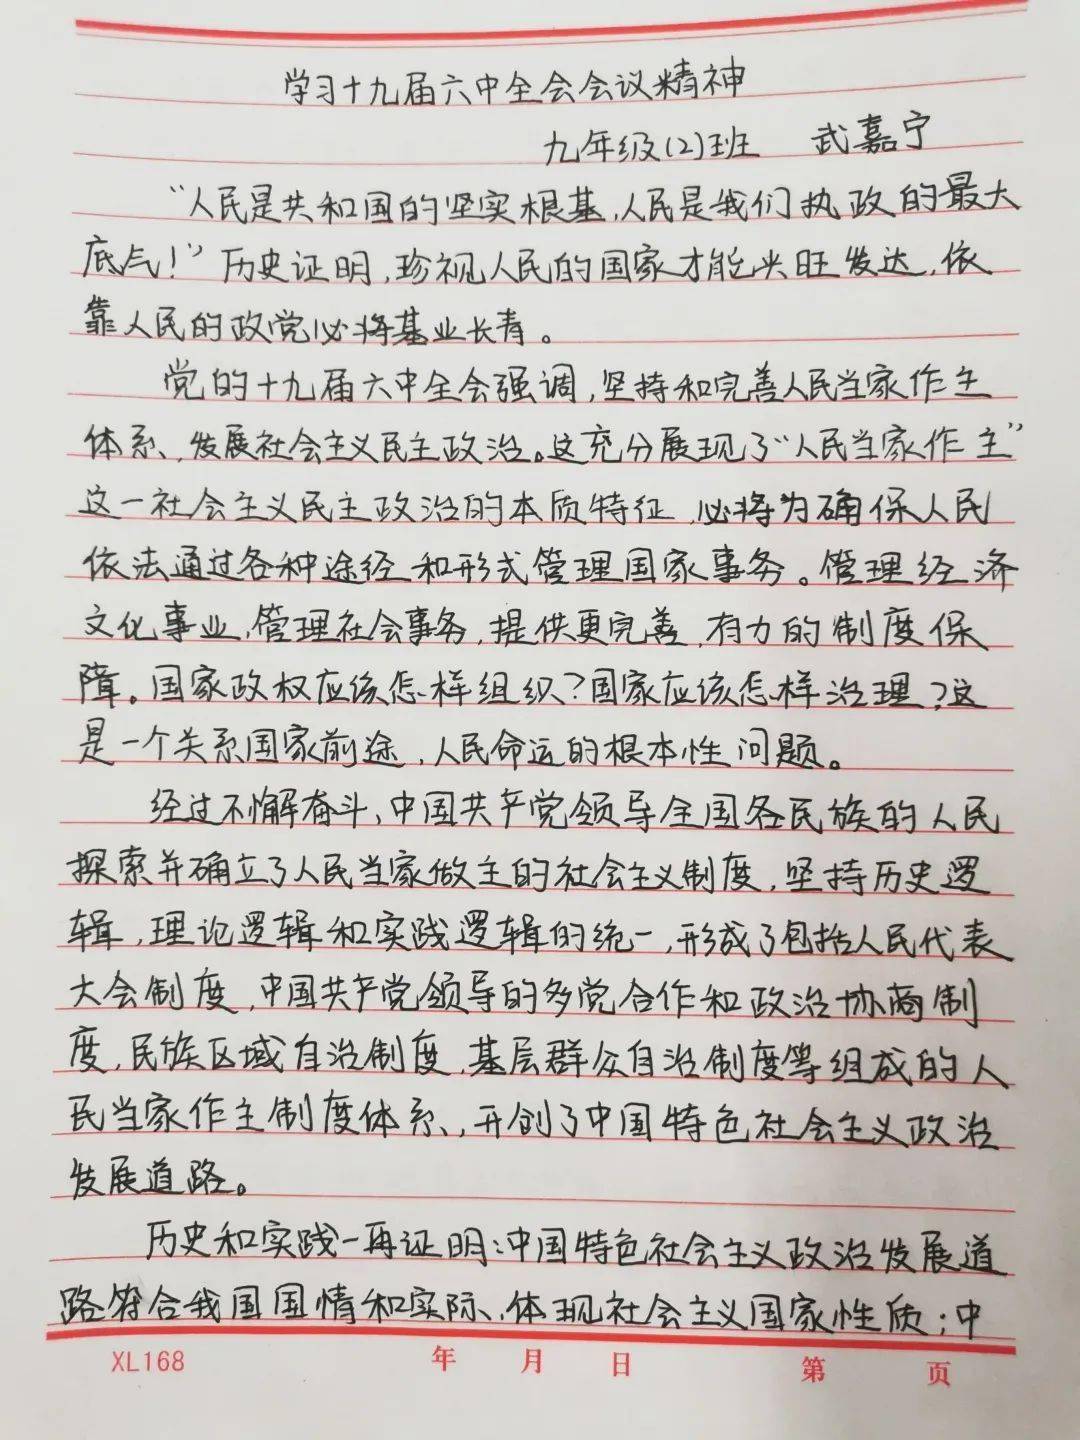 学习十九届六中全会会议精神
九年级(2)班 武嘉宁
“人民是共和国的坚实根基,人民是我们执政的最大
底气!”历史证明,珍视人民的国家才能兴旺发达,依
靠人民的政党必将基业长青。
党的十九届六中全会强调,坚持和完善人民当家作主
体系,发展社会主义民主政治。这充分展现了“人民当家作主”
这一社会主义民主政治的本质特征,必将为确保人民
依法通过各种途经和形式管理国家事务。管理经济
文化事业,管理社会事务,提供更完善,有力的制度保
障。国家政权应该怎样组织?国家应该怎样治理?这
是一个关系国家前途,人民命运的根本性问题。
经过不懈奋斗,中国共产党领导全国各民族的人民
探索并确立了人民当家做主的社会主义制度,坚持历史逻
辑,理论逻辑和实践逻辑的统一,形成了包括人民代表
大会制度,中国共产党领导的多党合作和政治协商制
度,民族区域自治制度,基层群众自治制度等组成的人
民当家作主制度体系,开创了中国特色社会主义政治
发展道路。
历史和实践一再证明:中国特色社会主义政治发展道
路符合我国国情和实际,体现社会主义国家性质;中
XL168 年 月 日 第 页